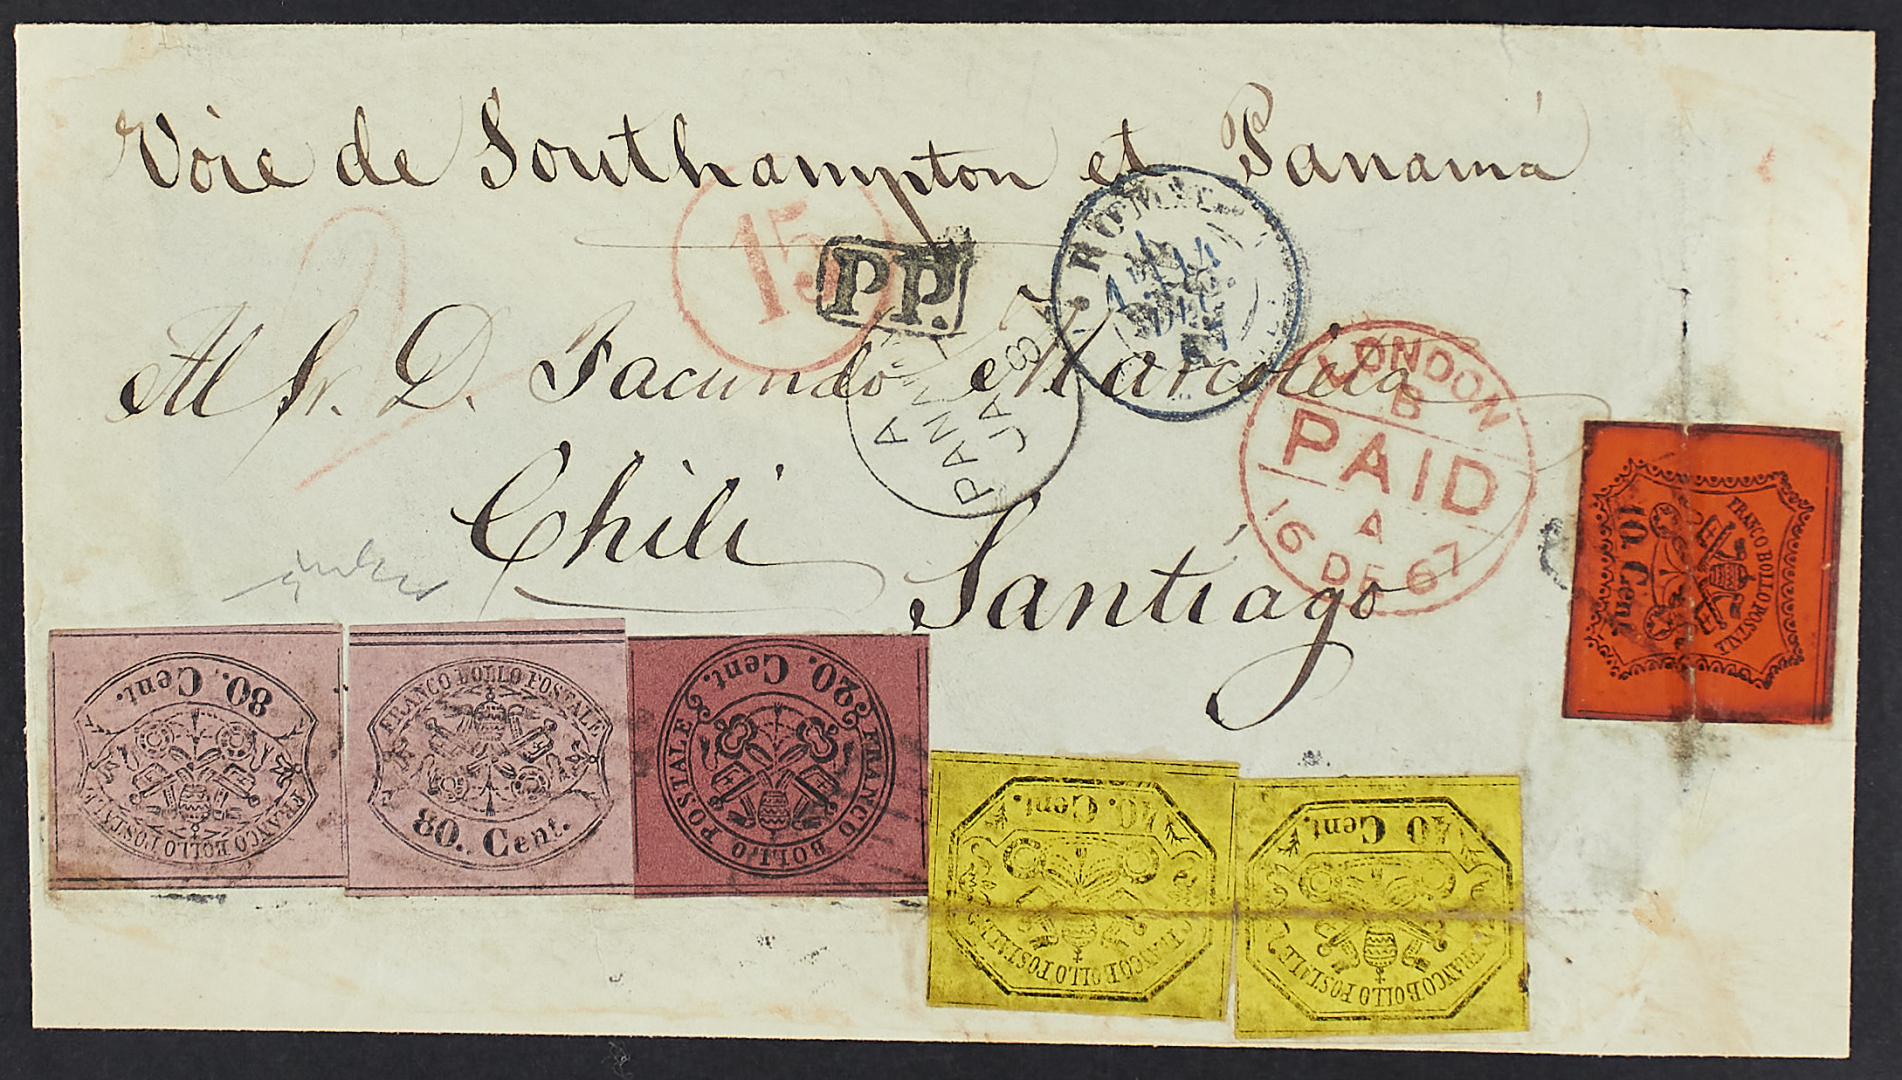 Voie de Southampton et Panamá
15
PP.
ROMA
11
DEC.
67
Al Sr. D. Facundo
PANAMA
JA 7
68
LONDON
B
PAID
A
16 DE 67
Chili
Santiago
80. Cent.
FRANCO BOLLO POSTALE
FRANCO BOLLO POSTALE
80. Cent.
20. Cent.
FRANCO BOLLO POSTALE
40. Cent.
FRANCO BOLLO POSTALE
40 Cent.
FRANCO BOLLO POSTALE
FRANCO BOLLO POSTALE
10. Cent.